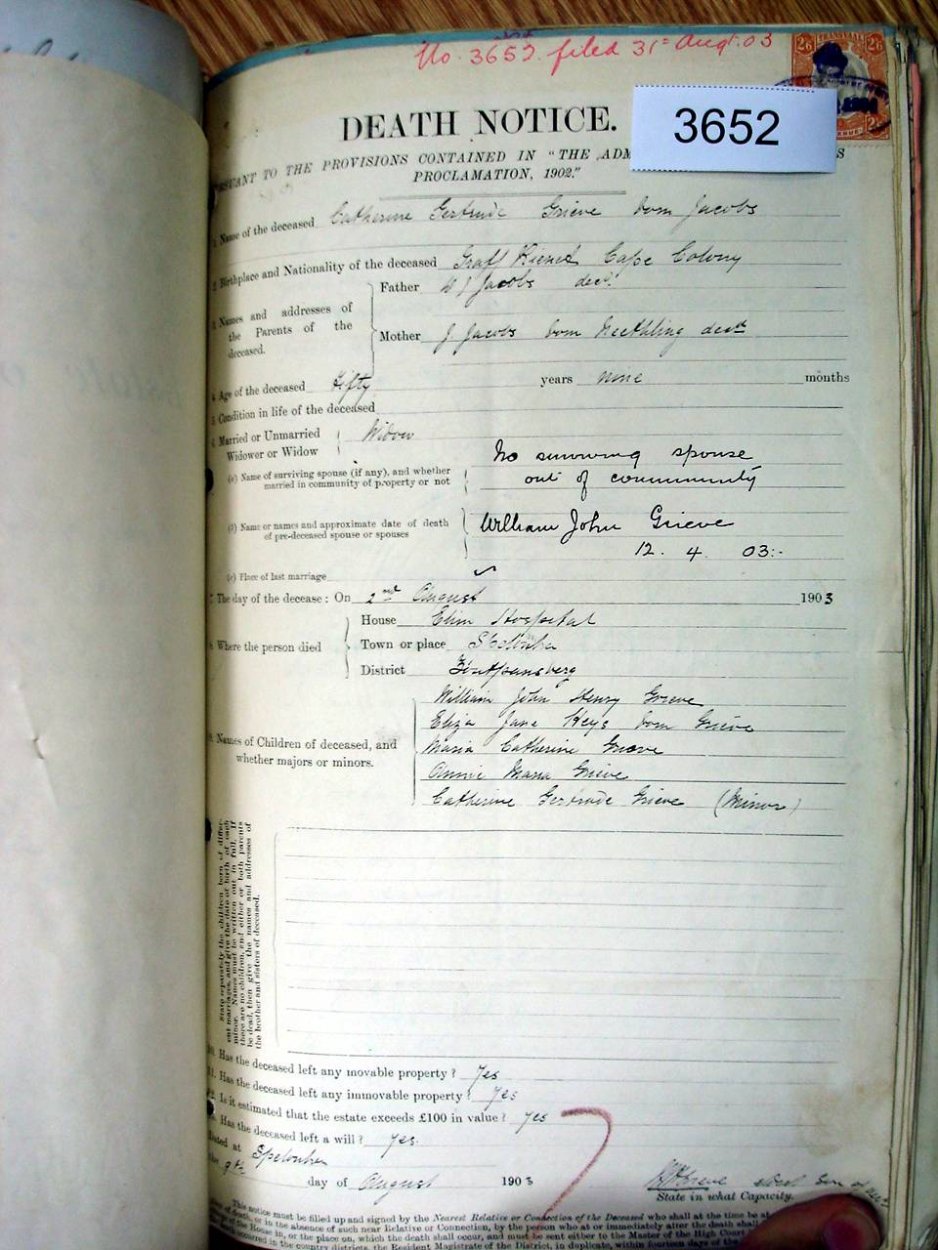 No. 3652 filed 31st Augt. 03
TRANSVAAL
2/6 2/6
3652
DEATH NOTICE.
PURSUANT TO THE PROVISIONS CONTAINED IN "THE ADM
PROCLAMATION, 1902."
1. Name of the deceased Catherine Gertrude Grieve born Jacobs
2. Birthplace and Nationality of the deceased Graff Reinet Cape Colony
3. Names and addresses of the Parents of the deceased.
Father Jacobs decd.
Mother J Jacobs born Neethling decd
4. Age of the deceased Fifty years none months
5. Condition in life of the deceased
6. Married or Unmarried
Widower or Widow Widow
(a) Name of surviving spouse (if any), and whether
married in community of property or not
No surviving spouse
out of community
(b) Name or names and approximate date of death
of pre-deceased spouse or spouses
William John Grieve
12. 4. 03:-
(c) Place of last marriage
7. The day of the decease: On 2nd August 1903
8. Where the person died
House Elim Hospital
Town or place Spelonken
District Zoutpansberg
9. Names of Children of deceased, and
whether majors or minors.
William John Henry Grieve
Eliza Jane Heys born Grieve
Maria Catherine Grieve
Annie Maria Grieve
Catherine Gertrude Grieve (Minor)
State separately the children born of differ-
ent marriages, and give the date of birth of each
minor. Names must be written out in full. If
there are no children, and either or both parents
be dead, then give the names and addresses of
the brother and sisters of deceased.
10. Has the deceased left any movable property? Yes
11. Has the deceased left any immovable property? Yes
12. Is it estimated that the estate exceeds £100 in value? Yes
13. Has the deceased left a will? Yes.
Dated at Spelonken
9th day of August 1903
Grieve Son of
State in what Capacity.
This notice must be filled up and signed by the Nearest Relative or Connection of the Deceased who shall at the time be at
of death, or in the absence of such near Relative or Connection, by the person who at or immediately after the death shall
of the House in, or the place on, which the death shall occur, and must be sent either to the Master of the High Court
occurred in the country districts, the Resident Magistrate of the District, in duplicate, within fourteen days of the